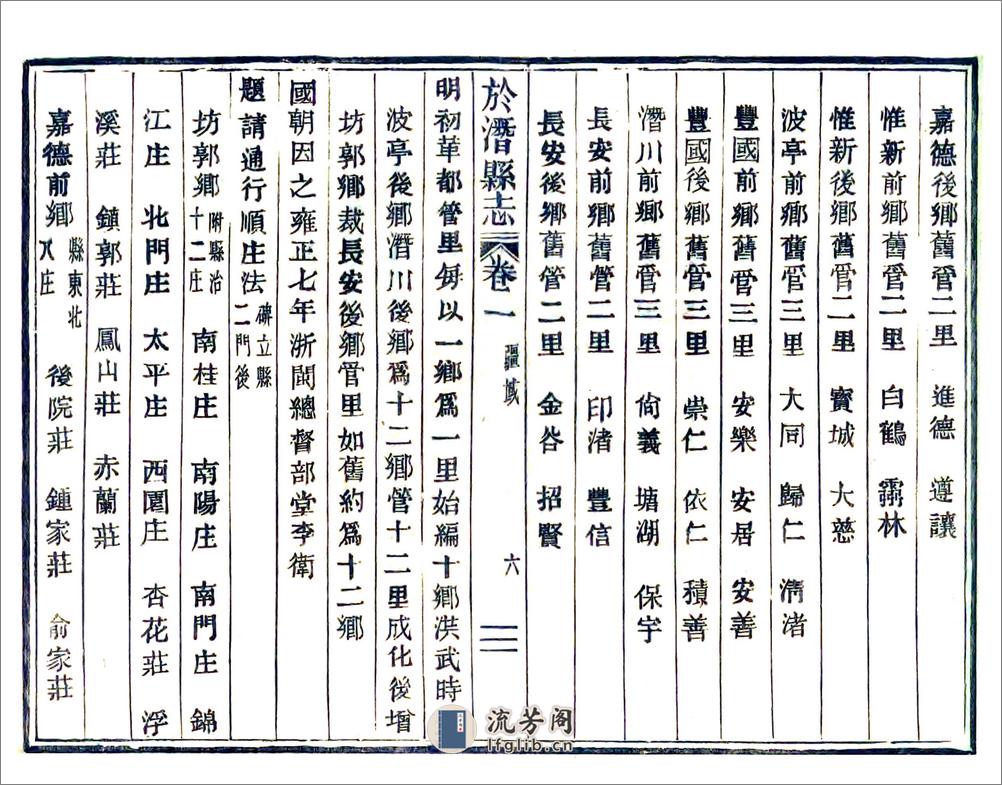 嘉德後鄉舊管二里　進德　遵讓
惟新前鄉舊管二里　白鶴　霜林
惟新後鄉舊管二里　寳城　大慈
波亭前鄉舊管三里　大同　歸仁　清渚
豐國前鄉舊管三里　安樂　安居　安善
豐國後鄉舊管三里　崇仁　依仁　積善
潛川前鄉舊管三里　尙義　塘湖　保宇
長安前鄉舊管二里　印渚　豐信
長安後鄉舊管二里　金谷　招賢
於潛縣志　卷一　疆域　六
明初革都管里每以一鄉爲一里始編十鄉洪武時
波亭後鄉潛川後鄉爲十二鄉管十二里成化後增
坊郭鄉裁長安後鄉管里如舊約爲十二鄉
國朝因之雍正七年浙閩總督部堂李衛
題請通行順庄法碑立縣二門後
坊郭鄉附縣治十二庄　南桂庄　南陽庄　南門庄　錦
江庄　北門庄　太平庄　西圊庄　杏花莊　浮
溪莊　鎮郭莊　鳳山莊　赤蘭莊
嘉德前鄉縣東北八庄　後院莊　鍾家莊　俞家莊
流芳阁
lfglib.cn